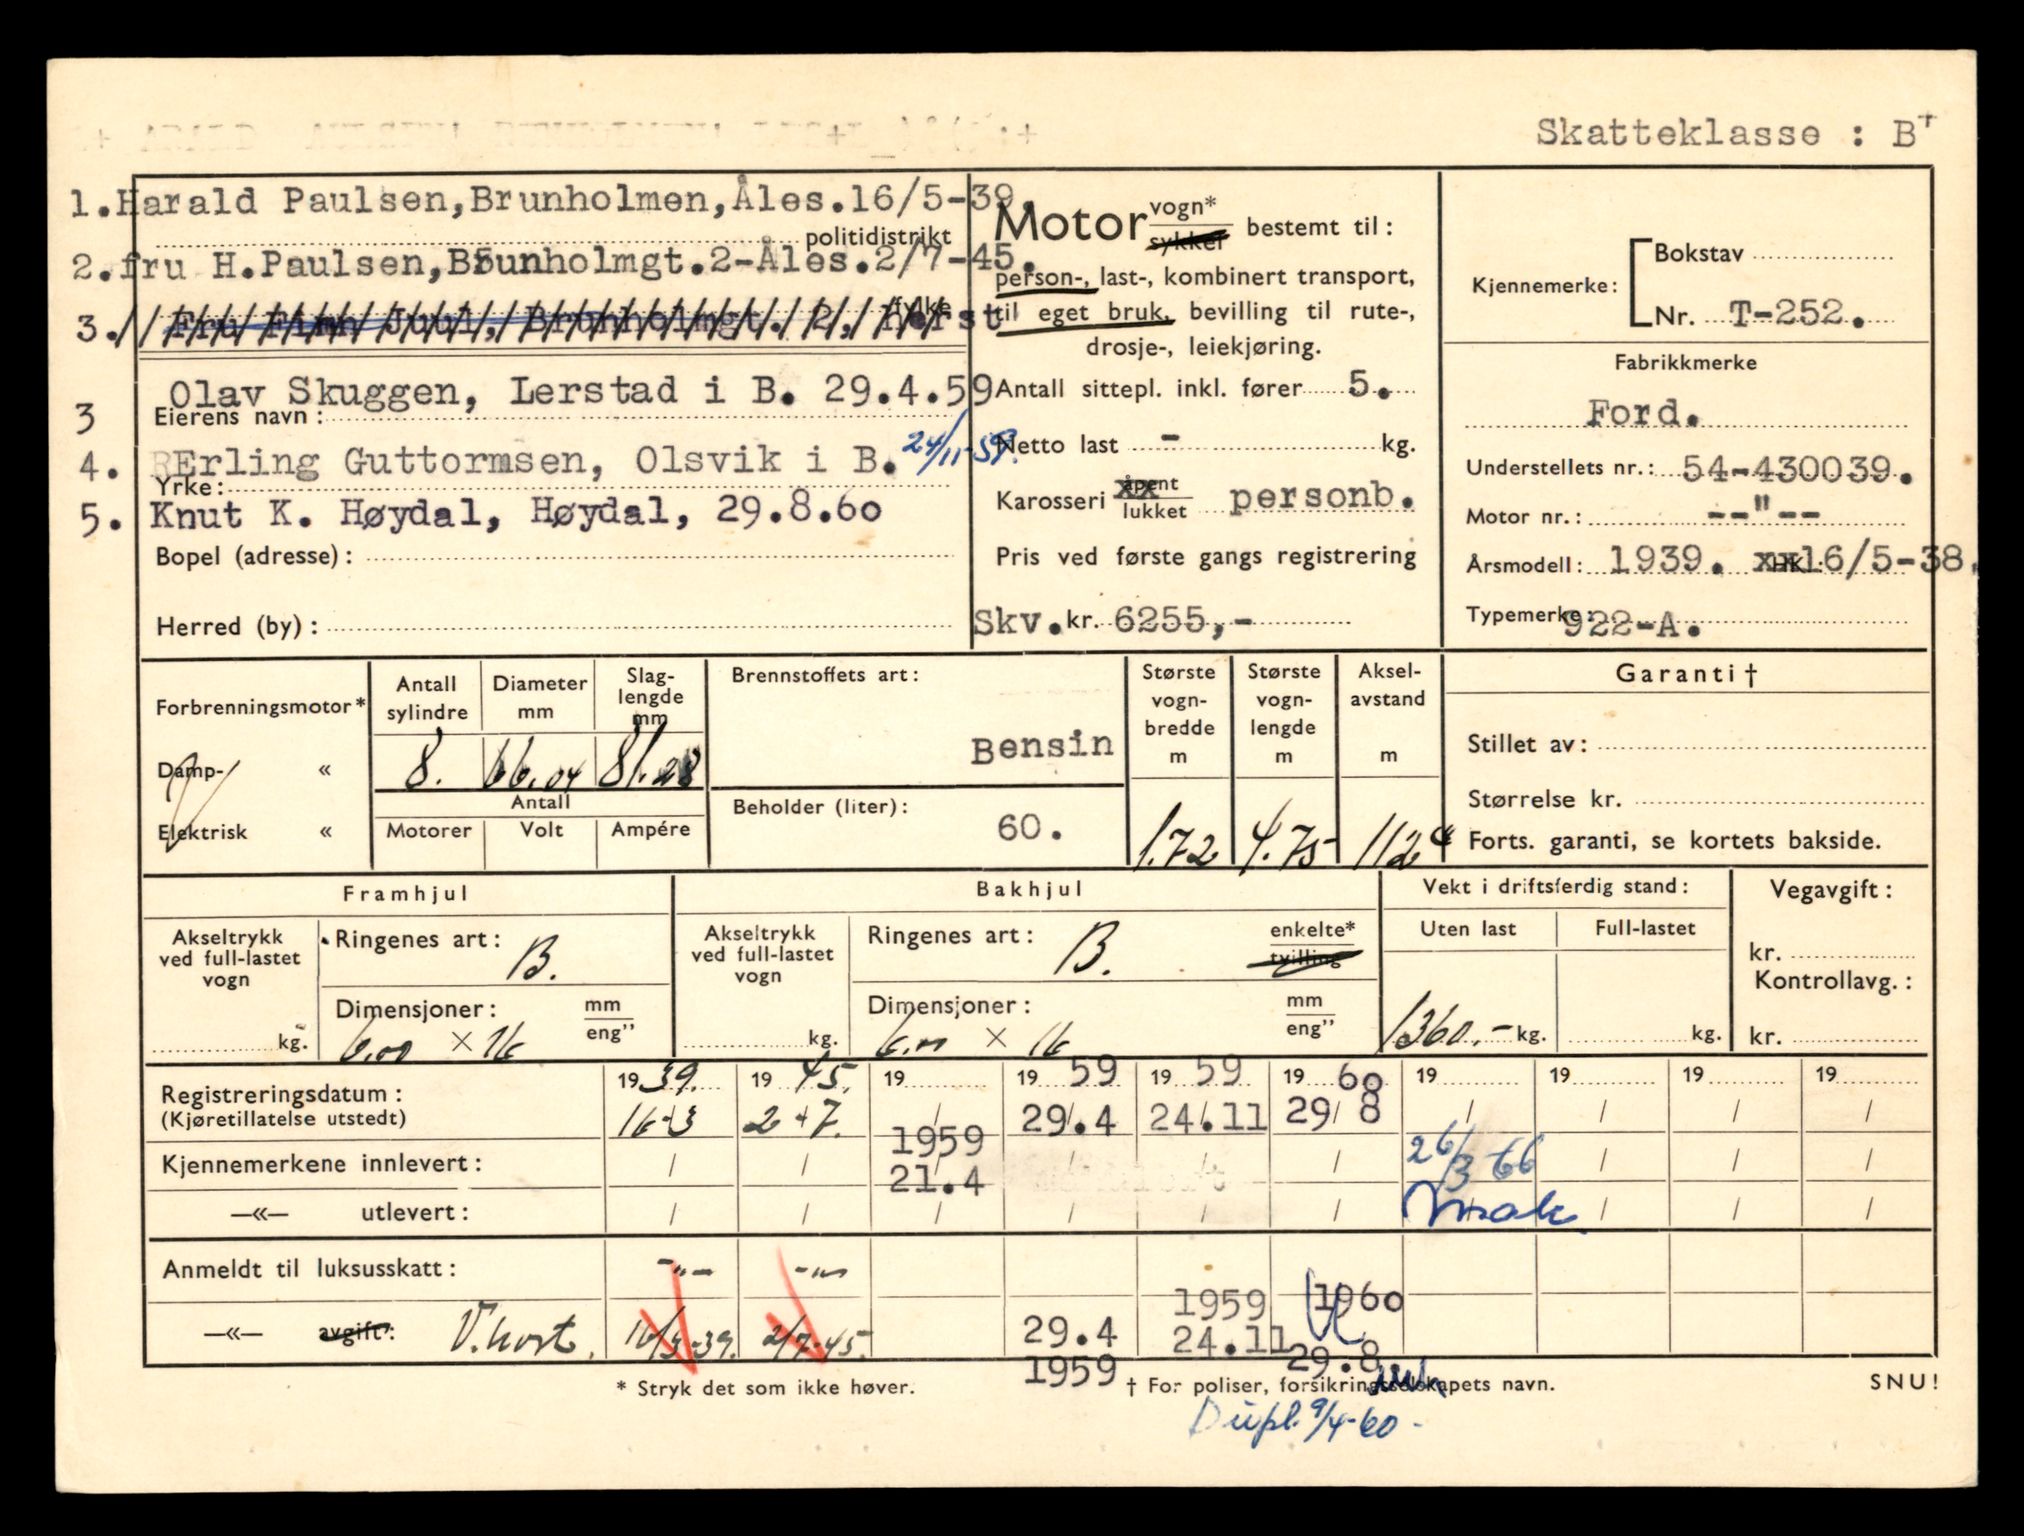 Skatteklasse : B+
1.Harald Paulsen,Brunholmen,Åles.16/5-39.
politidistrikt
2.fru H.Paulsen,Brunholmgt.2-Åles.2/7-45.
fylke
3. Fru Finn Juul, Brunholmgt. 2,
3 Olav Skuggen, Lerstad i B. 29.4.59
Eierens navn:
4. Erling Guttormsen, Olsvik i B. 24/11-59.
Yrke:
5. Knut K. Høydal, Høydal, 29.8.60
Bopel (adresse):
Herred (by):
Motor vogn* sykkel bestemt til:
person-, last-, kombinert transport,
til eget bruk, bevilling til rute-,
drosje-, leiekjøring.
Antall sittepl. inkl. fører 5.
Netto last - kg.
Karosseri åpent lukket personb.
Pris ved første gangs registrering
Skv. kr. 6255,-
Kjennemerke: Bokstav
Nr. T-252.
Fabrikkmerke
Ford.
Understellets nr.: 54-430039.
Motor nr.: --"--
Årsmodell: 1939. xx HK: 16/5-38.
Typemerke: 922-A.
Forbrenningsmotor*
Damp- «
Elektrisk «
Antall sylindre
8.
Diameter mm
66.04
Slaglengde mm
81.28
Antall
Motorer Volt Ampére
Brennstoffets art:
Bensin
Beholder (liter):
60.
Største vogn-bredde m
1.72
Største vogn-lengde m
4.75
Aksel-avstand m
112"
Garanti †
Stillet av:
Størrelse kr.
Forts. garanti, se kortets bakside.
Framhjul
Akseltrykk ved full-lastet vogn
kg.
Ringenes art: B.
Dimensjoner: mm eng"
6.00 × 16
Bakhjul
Akseltrykk ved full-lastet vogn
kg.
Ringenes art: B. enkelte* tvilling
Dimensjoner: mm eng"
6.00 × 16
Vekt i driftsferdig stand:
Uten last Full-lastet
1360.- kg. kg.
Vegavgift:
kr.
Kontrollavg.:
kr.
Registreringsdatum: 1939. 1945. 19 1959 1959 1960 19 19 19 19
(Kjøretillatelse utstedt) 16-3 2-7. / 29.4 24.11 29/8 / / / /
1959
Kjennemerkene innlevert: / / 21.4 / / / 26/3 66 / / /
—«— utlevert: / / / / / / Vrak / / /
Anmeldt til luksusskatt: -"- -"-
1959 1960
—«— avgift: V.kort. 16/3-39. 2/7-45. 29.4 24.11 29.8
1959
* Stryk det som ikke høver. † For poliser, forsikringsselskapets navn. SNU!
Dupl. 9/4-60-